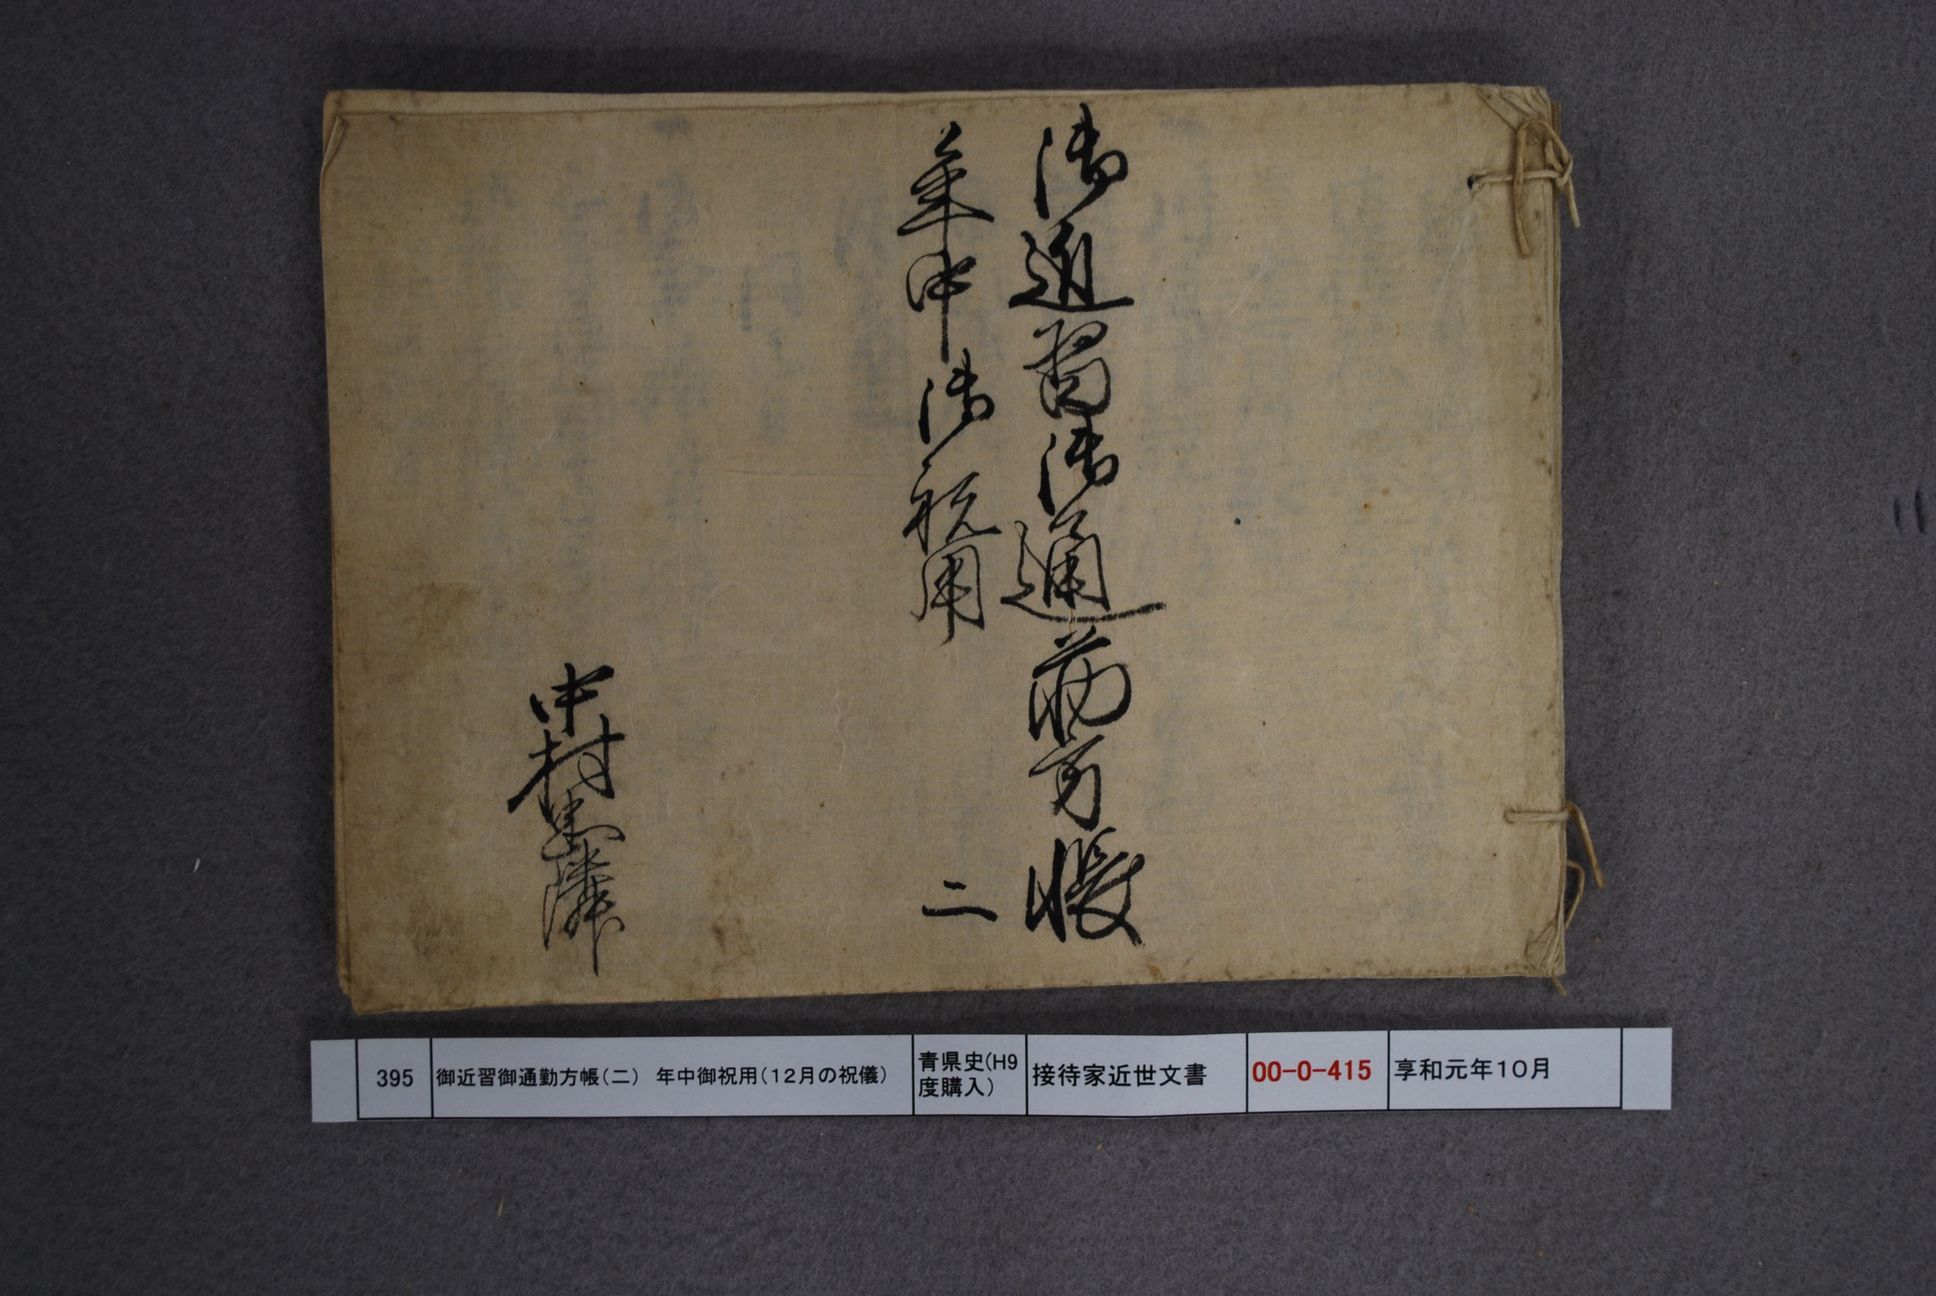 御近習御通勤方帳
年中御祝用
二
中村忠隣
395
御近習御通勤方帳(二) 年中御祝用(12月の祝儀)
青県史(H9
度購入)
接待家近世文書
00-0-415
享和元年10月